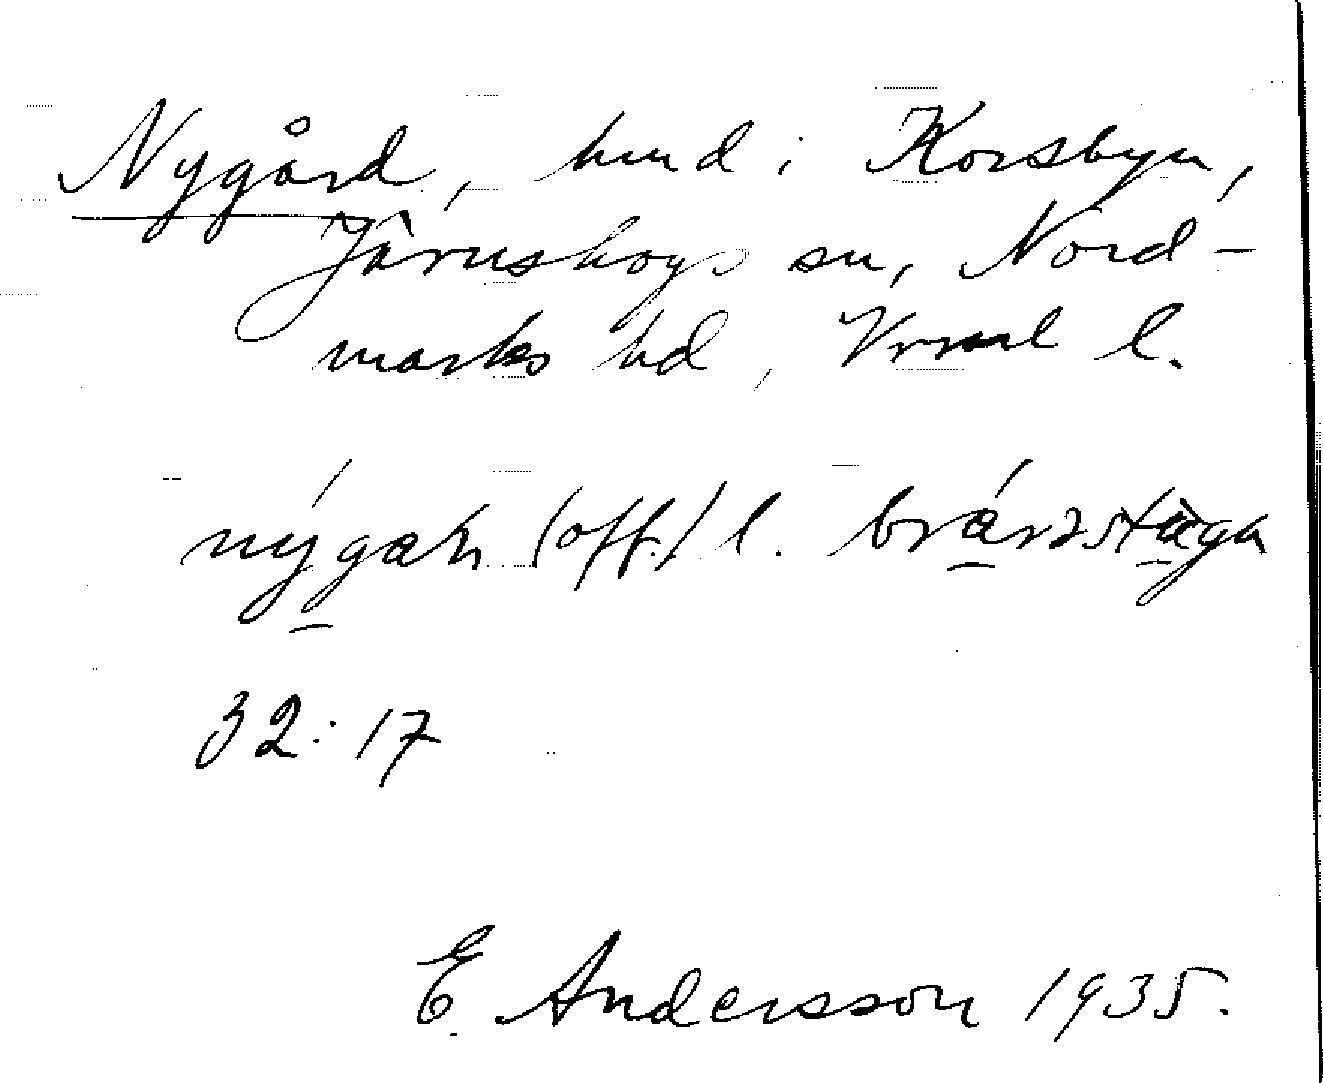 Nygård, hmd i Korsbyn,
Järnskogs sn, Nord-
marks hd, Vrml l.
nýgaṇ (off.) l. brárstùga
32:17
E. Andersson 1935.